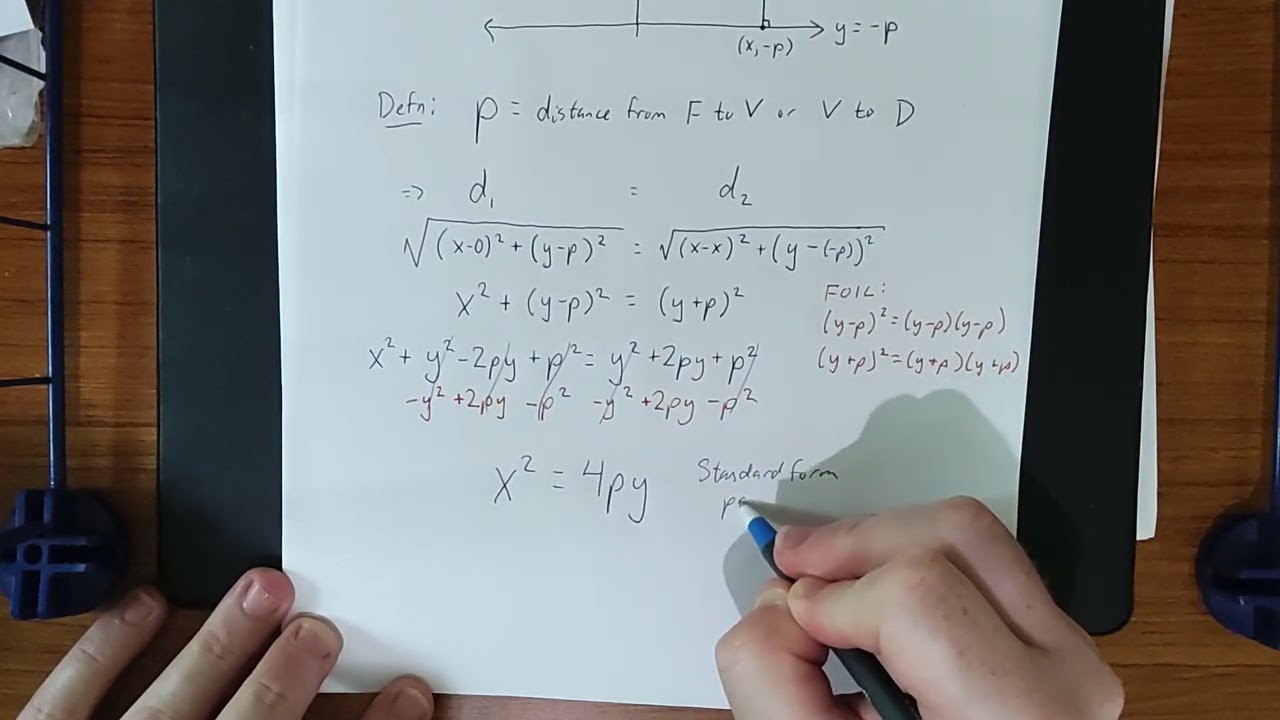 y = -p
(x, -p)
Defn: p = distance from F to V or V to D
=> d₁ = d₂
√((x-0)² + (y-p)²) = √((x-x)² + (y-(-p))²)
x² + (y-p)² = (y+p)²
FOIL:
(y-p)² = (y-p)(y-p)
(y+p)² = (y+p)(y+p)
x² + y² - 2py + p² = y² + 2py + p²
-y² +2py -p² -y² +2py -p²
x² = 4py
Standard form